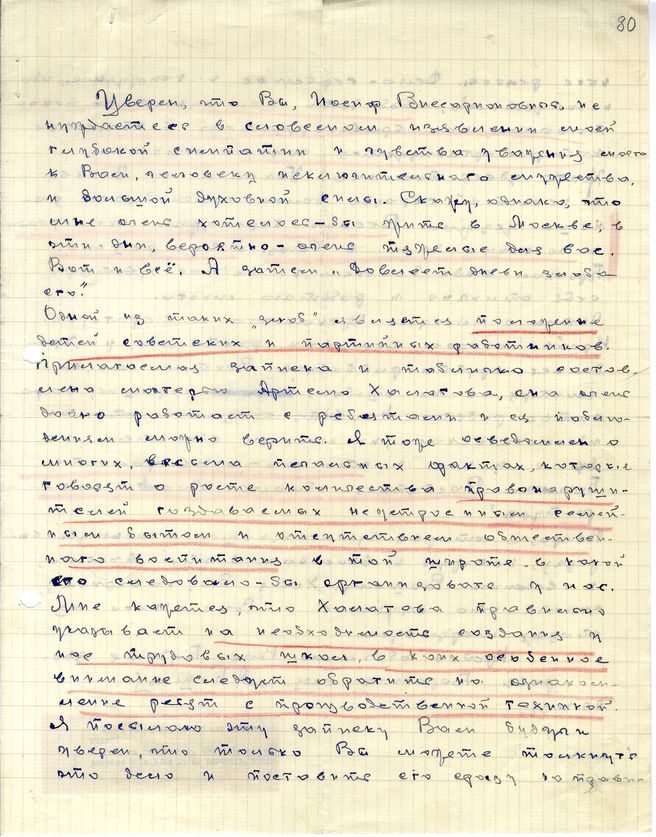 80
Уверен, что Вы, Иосиф Виссарионович, не
нуждаетесь в словесном изъявлении моей
глубокой симпатии и чувства уважения моего
к Вам, человеку исключительного мужества,
и большой духовной силы. Скажу, однако, что
мне очень хотелось-бы жить в Москве, в
эти дни, вероятно – очень тяжелые для вас.
Вот и всё. А затем „Довлеет дневи злоба
его".
Одной из таких „злоб" является положение
детей советских и партийных работников.
Прилагаемая записка и таблица состав-
лена матерью Артема Халатова, она очень
давно работает с ребятами и ея наблю-
дениям можно верить. Я тоже осведомлен о
многих, весьма печальных фактах, которые
говорят о росте количества правонаруши-
телей создаваемых неустроенным семей-
ным бытом и отсутствием обществен-
наго воспитания в той широте, в какой
его следовало-бы организовать у нас.
Мне кажется, что Халатова правильно
указывает на необходимость создания у
нас трудовых школ, в коих особенное
внимание следует обратить на ознаком-
ление ребят с производственной техникой.
Я посылаю эту записку Вам будучи
уверен, что только Вы можете толкнуть
это дело и поставить его сразу на прави-